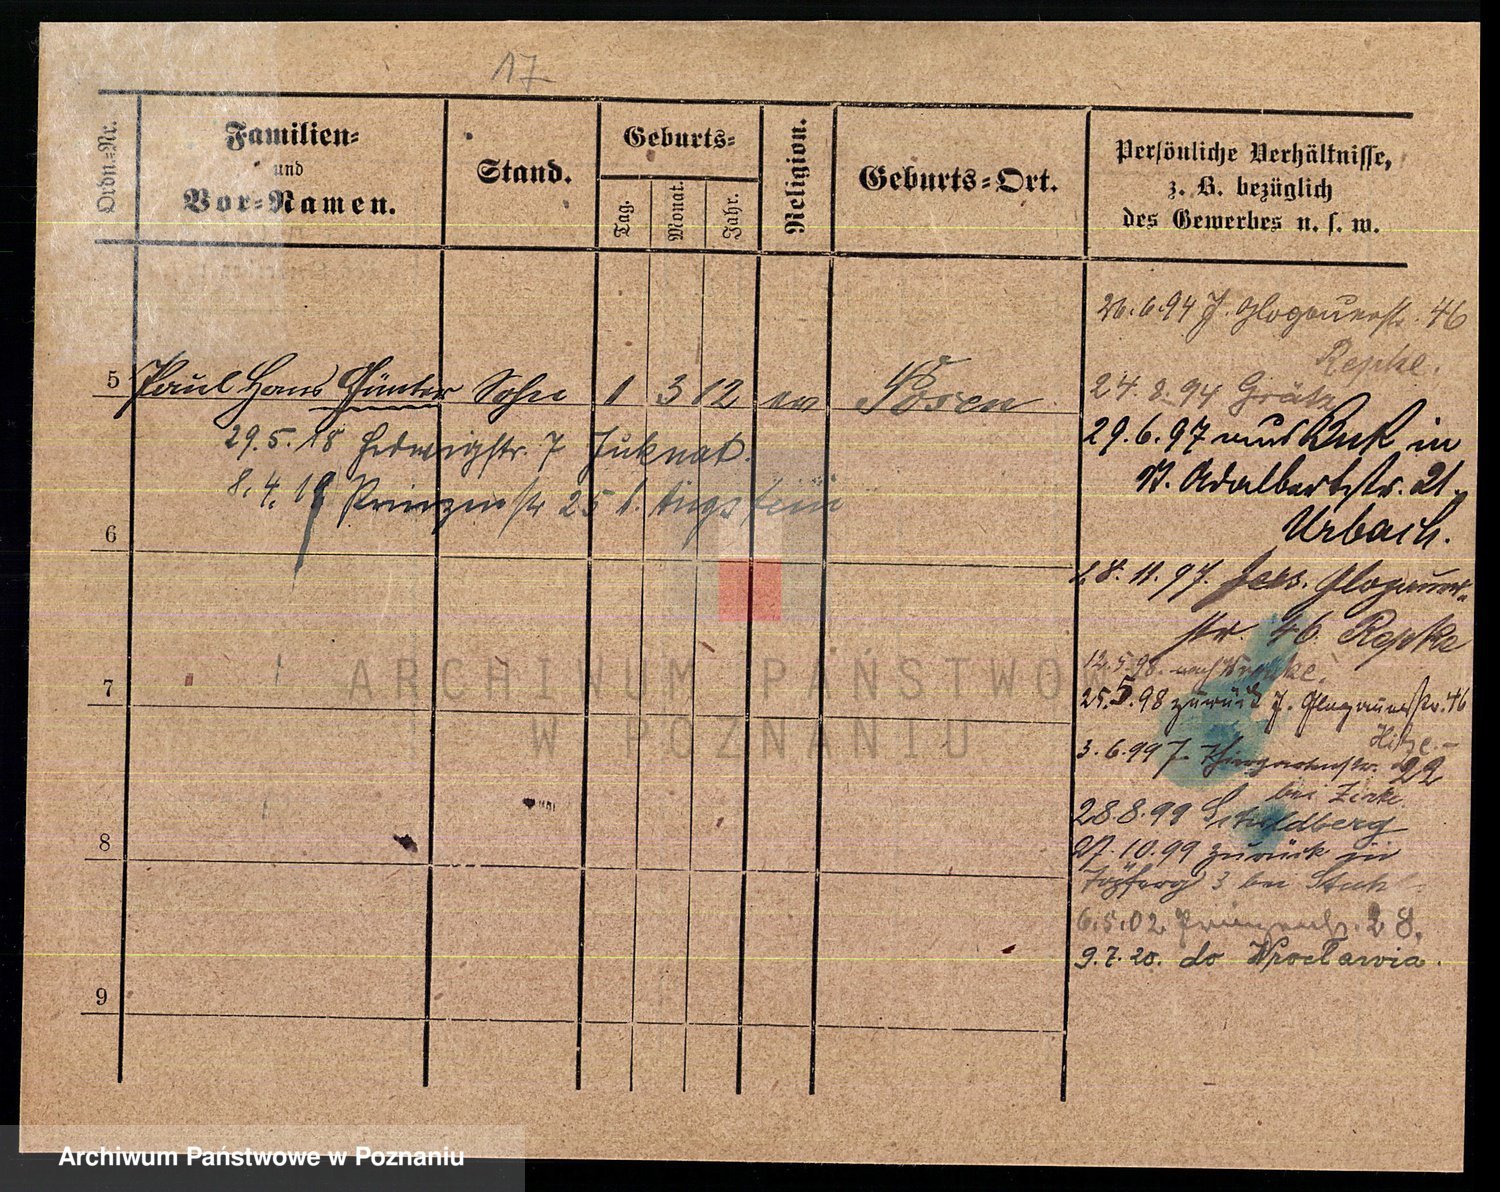 17
Ordn.-Nr.
Familien-
und
Vor-Namen.
Stand.
Geburts-
Tag.
Monat.
Jahr.
Religion.
Geburts-Ort.
Persönliche Verhältnisse,
z. B. bezüglich
des Gewerbes u. s. w.
26.6.94 J. Glogauerstr. 46
Repke.
24.8.94 Grätz
5 Paul Hans Günter Sohn 1 3 12 ev Posen
29.6.97 aus Buk in
St. Adalbertstr. 21
Urbach.
29.5.18 Hedwigstr. 7 Juknat.
8.4.19 Prinzenstr 25
6
18.11.97. Jers. Glogauer-
str 46. Repke
12.5.98. nach
7
25.5.98 zurück J. Glogauerstr. 46
3.6.99 J. Thiergartenstr. 22
bei
28.8.99
8
27.10.99 zurück in
3 bei
6.5.02 Prinzenstr. 28.
9.7.20. do Wrocławia.
9
ARCHIWUM PAŃSTWOWE
W POZNANIU
Archiwum Państwowe w Poznaniu